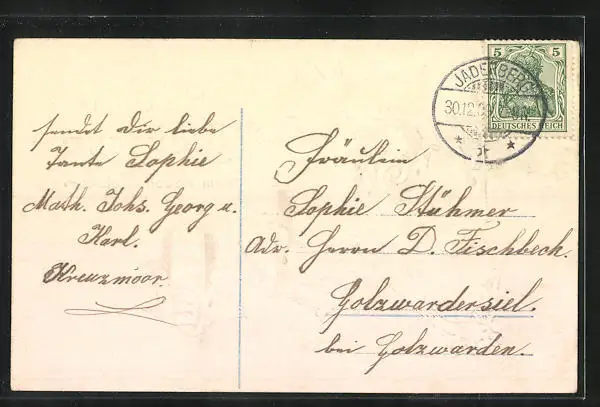 sendet Dir liebe
Tante Sophie
Math. Johs. Georg u.
Karl.
Kreuzmoor.
5 5
DEUTSCHES REICH
JADERBERG
30.12.
Fräulein
Sophie Stühmer
Adr. Herrn D. Fischbeck.
Golzwardersiel.
bei Golzwarden.